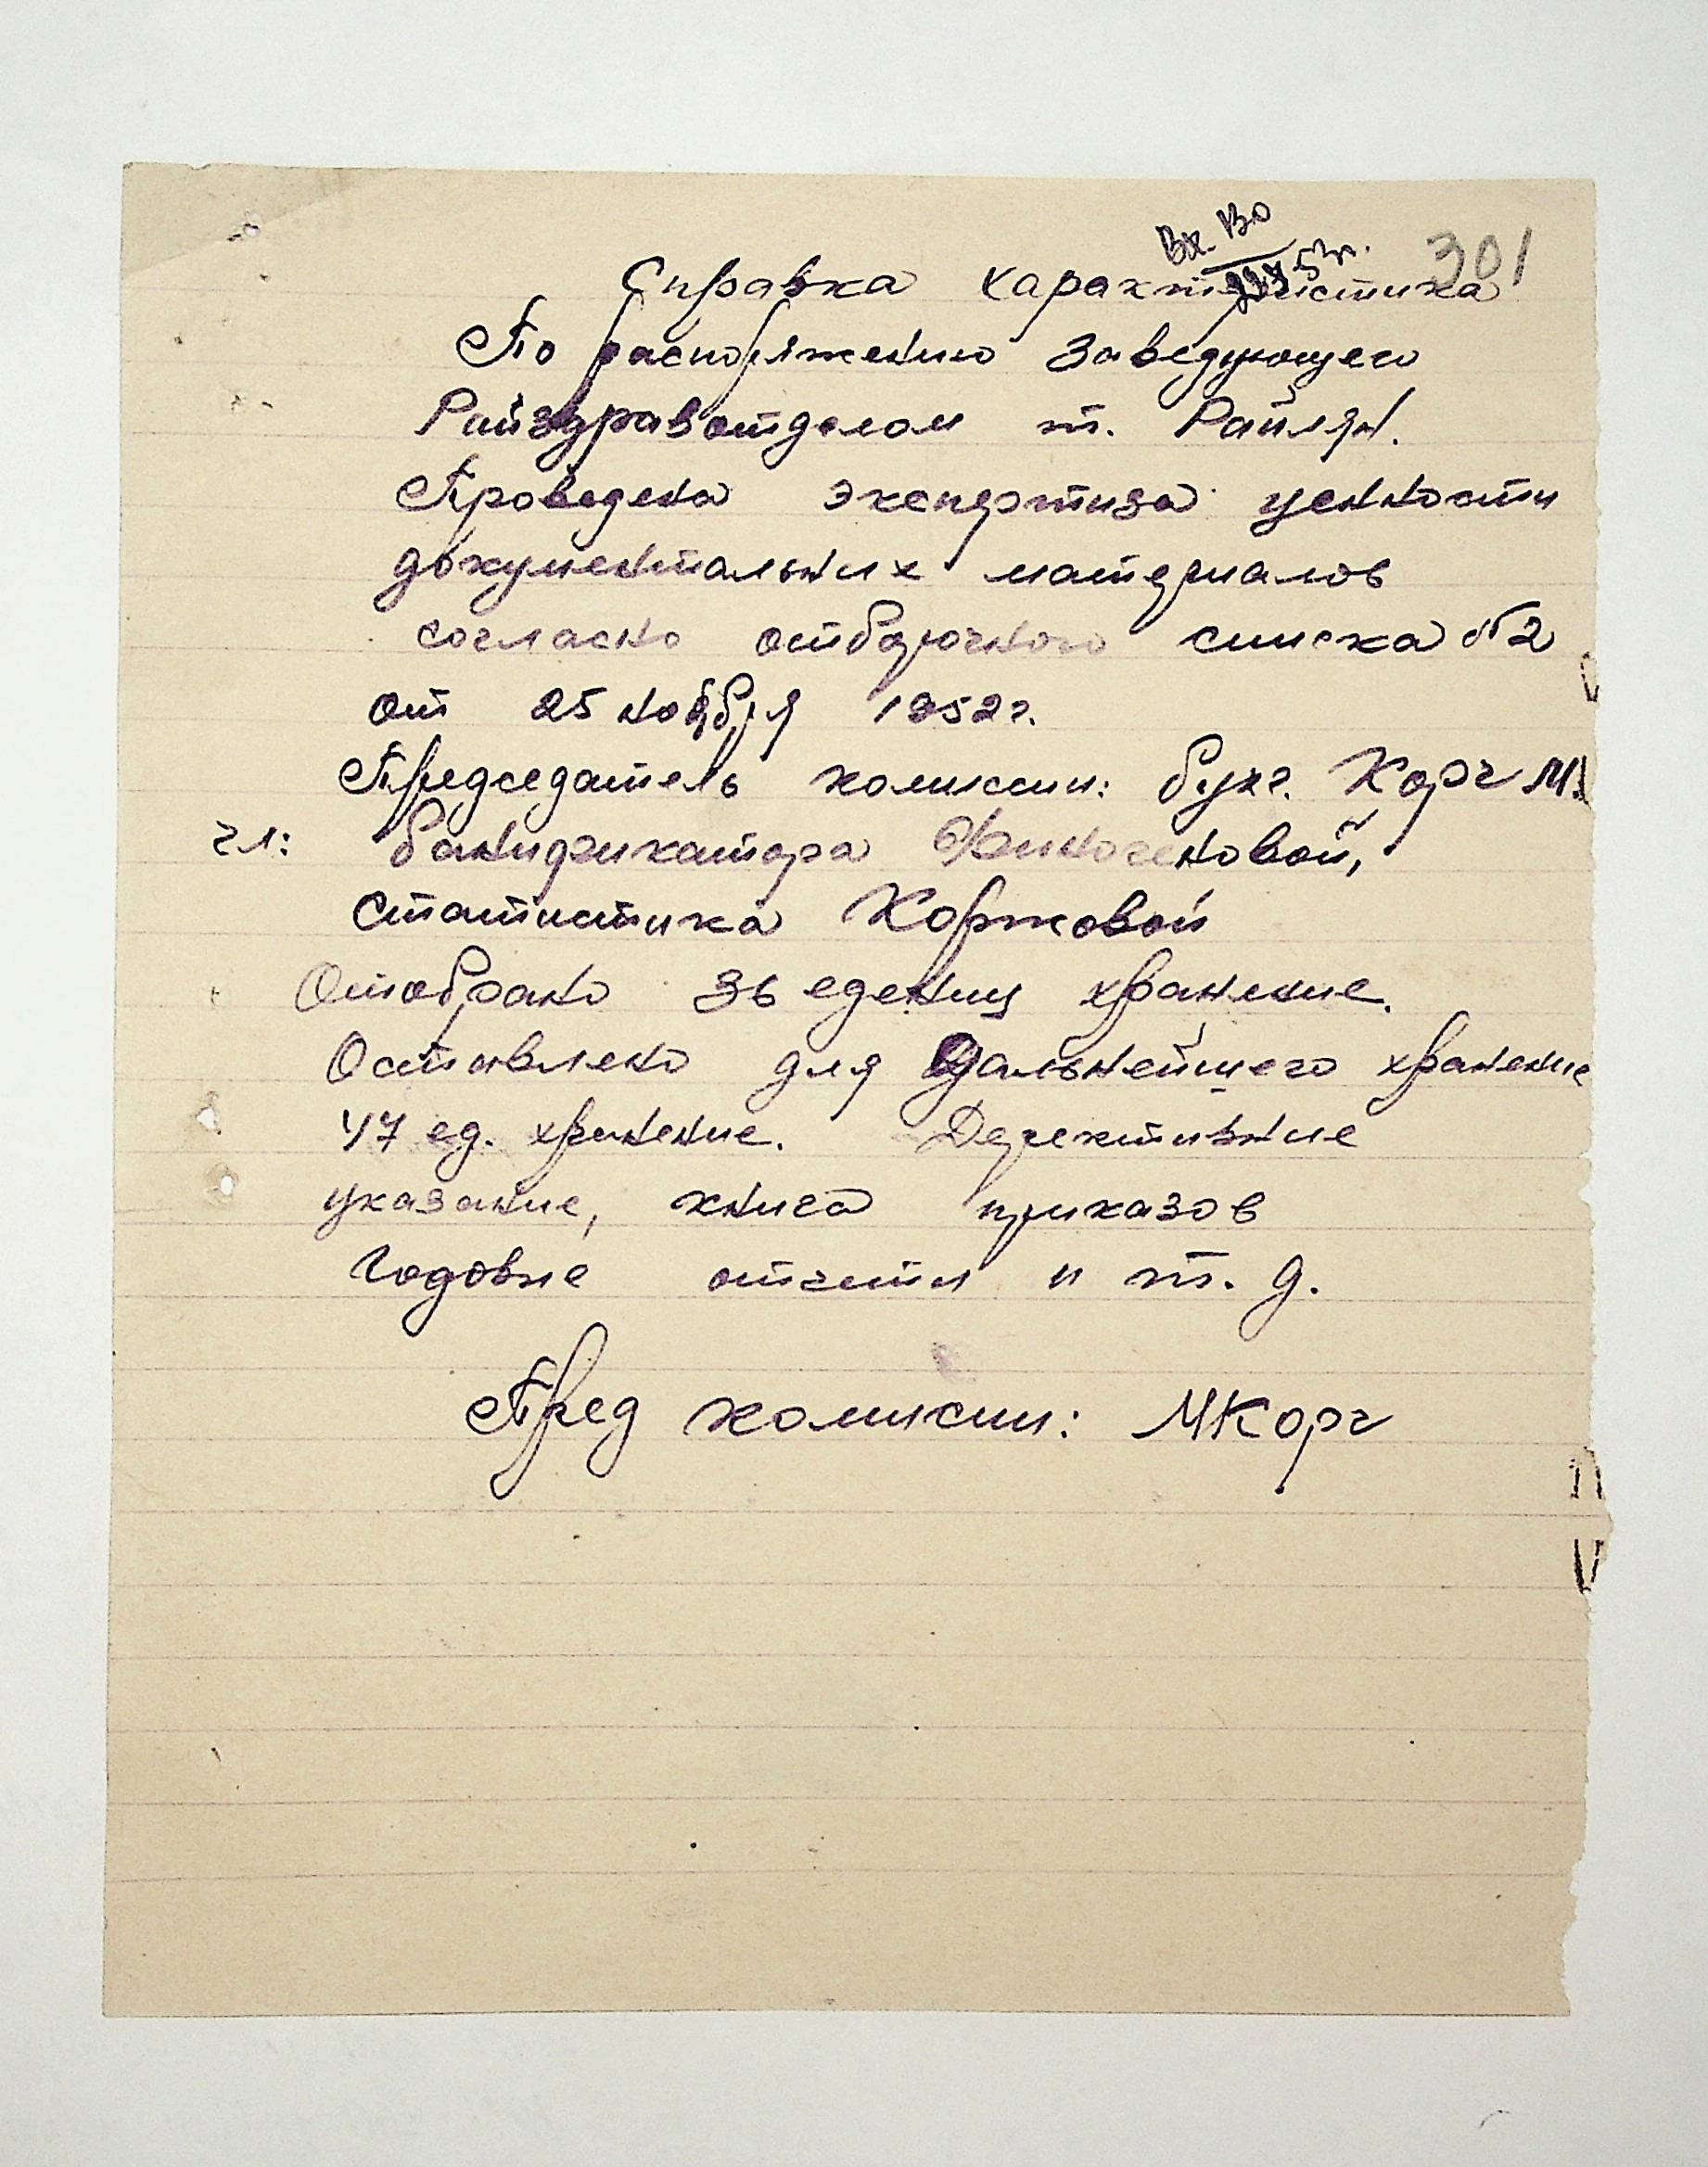 Вх. 130
53г.
301
Справка характеристика
По распоряжению заведующего
Райздравотделом т. Райлян.
Проведена экспертиза ценности
документальних материалов
согласно отборочного списка №2
от 25 ноября 1952г.
Председатель комиссии: бухг. Корч М.
чл:
статистика Коржовой
Отобрано 36 едениц хранение.
Оставлено для дальнейшего хранение
47 ед. хранение. Дерективние
указание, книга приказов
Годовие отчети и т. д.
Пред комисии: МКорч